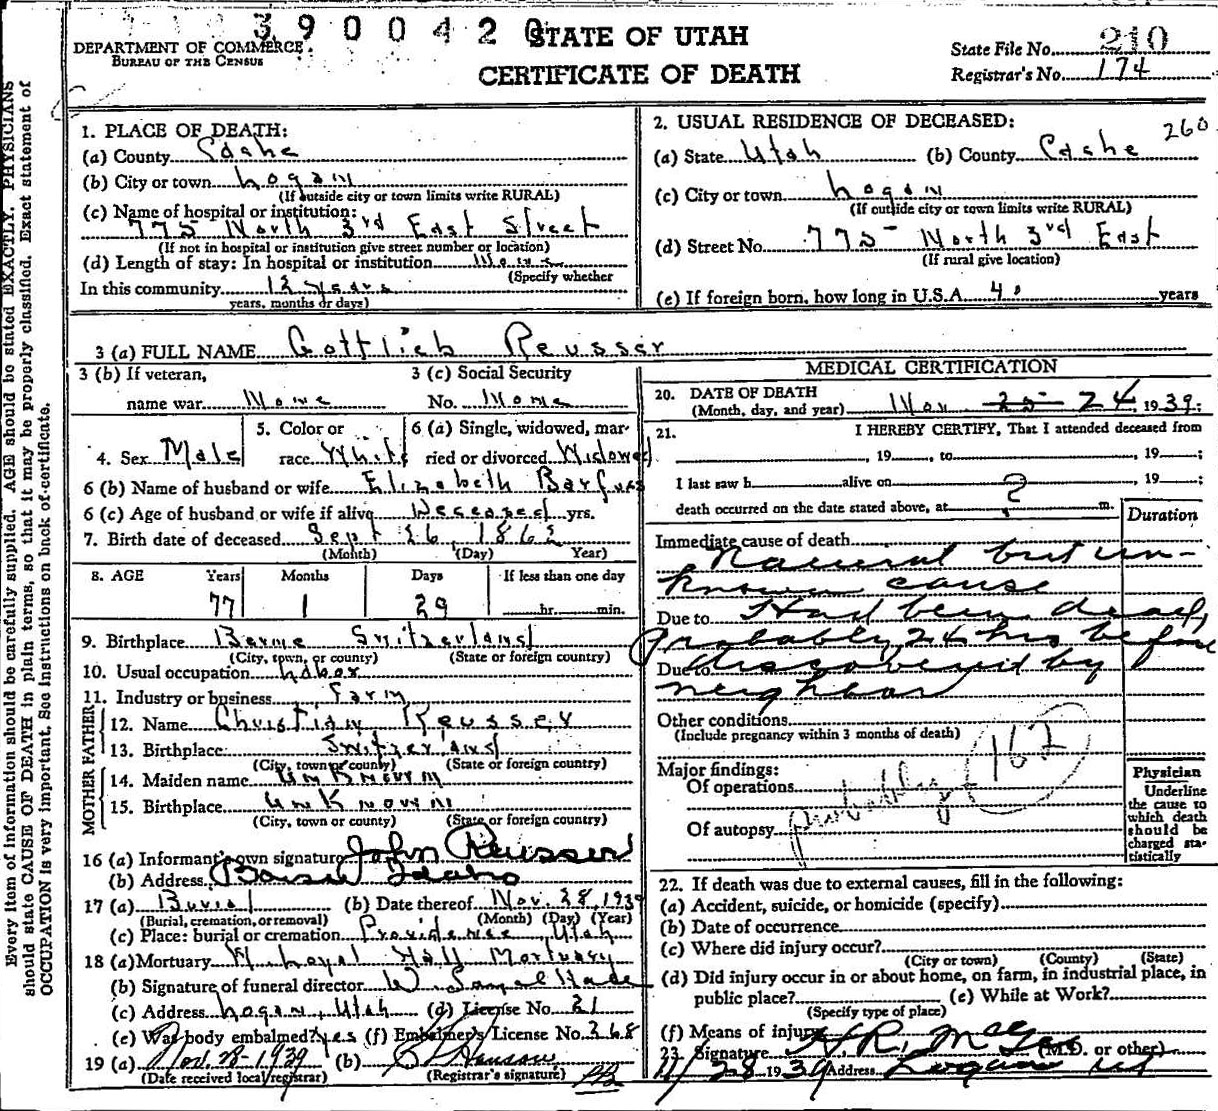 390042
STATE OF UTAH
CERTIFICATE OF DEATH
DEPARTMENT OF COMMERCE
BUREAU OF THE CENSUS
State File No. 210
Registrar's No. 174
Every item of information should be carefully supplied. AGE should be stated EXACTLY. PHYSICIANS
should state CAUSE OF DEATH in plain terms, so that it may be properly classified. Exact statement of
OCCUPATION is very important. See instructions on back of certificate.
1. PLACE OF DEATH:
(a) County Cache
(b) City or town Logan
(If outside city or town limits write RURAL)
(c) Name of hospital or institution:
775 North 3rd East Street
(If not in hospital or institution give street number or location)
(d) Length of stay: In hospital or institution None
(Specify whether
In this community 12 years
years, months or days)
2. USUAL RESIDENCE OF DECEASED: 260
(a) State Utah (b) County Cache
(c) City or town Logan
(If outside city or town limits write RURAL)
(d) Street No. 775 North 3rd East
(If rural give location)
(e) If foreign born, how long in U.S.A. 40 years
3 (a) FULL NAME Gottlieb Reusser
3 (b) If veteran,
name war None
3 (c) Social Security
No. None
4. Sex Male
5. Color or
race White
6 (a) Single, widowed, mar-
ried or divorced Widowed
6 (b) Name of husband or wife Elizabeth Barfuss
6 (c) Age of husband or wife if alive Deceased yrs.
7. Birth date of deceased Sept 26, 1862
(Month) (Day) Year)
8. AGE Years Months Days If less than one day
77 1 29 hr. min.
9. Birthplace Berne Switzerland
(City, town, or county) (State or foreign country)
10. Usual occupation Labor
11. Industry or business Farm
FATHER
12. Name Christian Reusser
13. Birthplace Switzerland
(City, town or county) (State or foreign country)
MOTHER
14. Maiden name Unknown
15. Birthplace Unknown
(City, town or county) (State or foreign country)
16 (a) Informant's own signature John Reusser
(b) Address Boise Idaho
17 (a) Burial (b) Date thereof Nov. 28, 1939
(Burial, cremation, or removal) (Month) (Day) (Year)
(c) Place: burial or cremation Providence, Utah
18 (a) Mortuary W. Loyal Hall Mortuary
(b) Signature of funeral director W. Loyal Hall
(c) Address Logan, Utah (d) License No. 21
(e) Was body embalmed? yes (f) Embalmer's License No. 368
19 (a) Nov. 28-1939 (b)
(Date received local registrar) (Registrar's signature)
MEDICAL CERTIFICATION
20. DATE OF DEATH
(Month, day, and year) Nov. 25 24, 1939;
21. I HEREBY CERTIFY, That I attended deceased from
, 19 , to , 19 ;
I last saw h alive on ? , 19 ;
death occurred on the date stated above, at m.
Duration
Immediate cause of death
Natural but un-
known cause
Due to Had been dead,
probably 24 hrs before
Due to discovered by
neighbor
Other conditions
(Include pregnancy within 3 months of death)
Major findings:
Of operations
Of autopsy
probably 167
Physician
Underline
the cause to
which death
should be
charged sta-
tistically
22. If death was due to external causes, fill in the following:
(a) Accident, suicide, or homicide (specify)
(b) Date of occurrence
(c) Where did injury occur?
(City or town) (County) (State)
(d) Did injury occur in or about home, on farm, in industrial place, in
public place? (e) While at Work?
(Specify type of place)
(f) Means of injury
23. Signature H. R. McGee (M.D. or other)
11/28 1939 Address Logan Ut